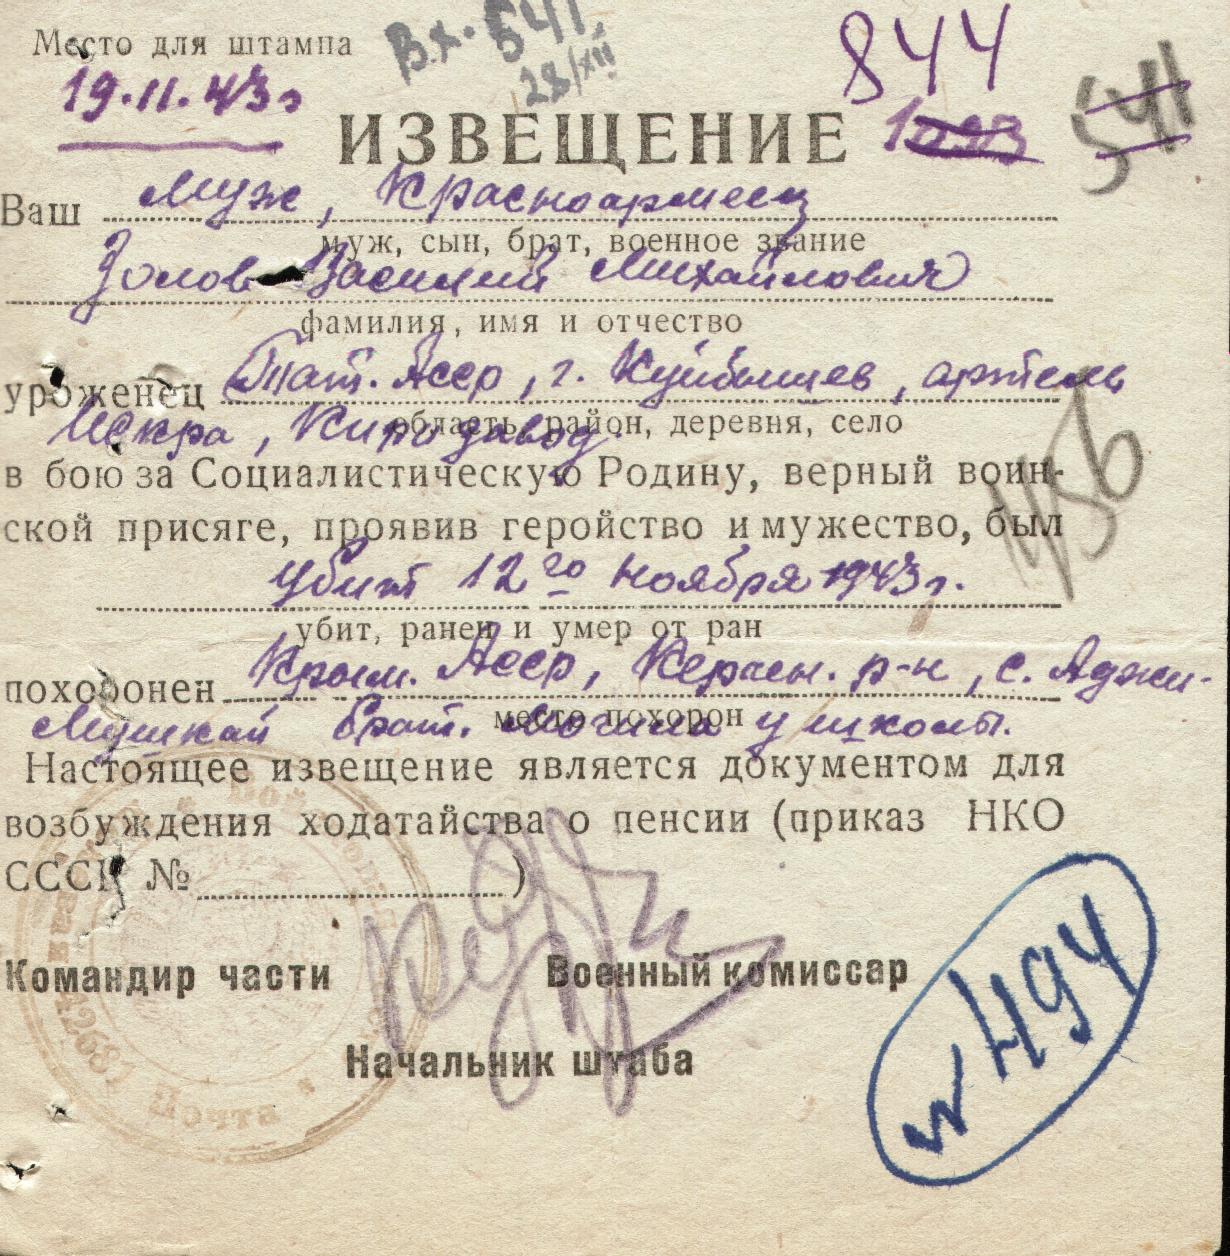 Место для штампа
Вх. 541
28/XII
844
19.11.43г
ИЗВЕЩЕНИЕ
541
Ваш Муж, Красноармеец
муж, сын, брат, военное звание
Золов Василий Михайлович
фамилия, имя и отчество
уроженец Тат. Асср, г. Куйбышев, артель
область, район, деревня, село
Искра, Кирп. завод.
в бою за Социалистическую Родину, верный воин-
ской присяге, проявив геройство и мужество, был
убит 12го ноября 1943г.
убит, ранен и умер от ран
похоронен Крым. Асср, Керчен. р-н, с. Аджи-
место похорон
Мушкай Брат. могила у школы.
Настоящее извещение является документом для
возбуждения ходатайства о пенсии (приказ НКО
СССР №)
Командир части Военный комиссар
Начальник штаба
Почта
494